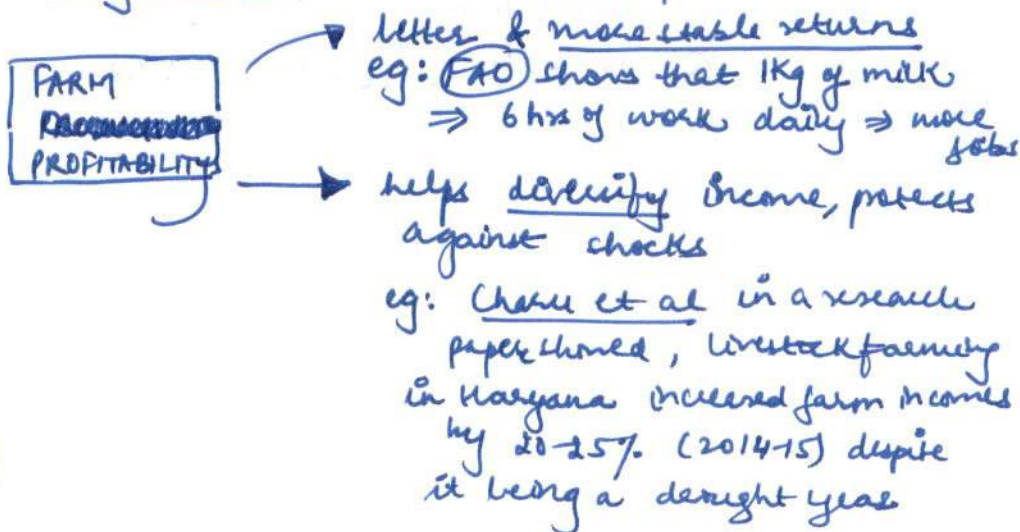 better & more stable returns
FARM
PROFITABILITY
eg: FAO shows that 1Kg of milk
⇒ 6 hrs of work daily ⇒ more
jobs
helps diversify income, protects
against shocks
eg: et al in a research
paper showed, livestock farming
in Haryana increased farm incomes
by 20-25% (2014-15) despite
it being a drought year